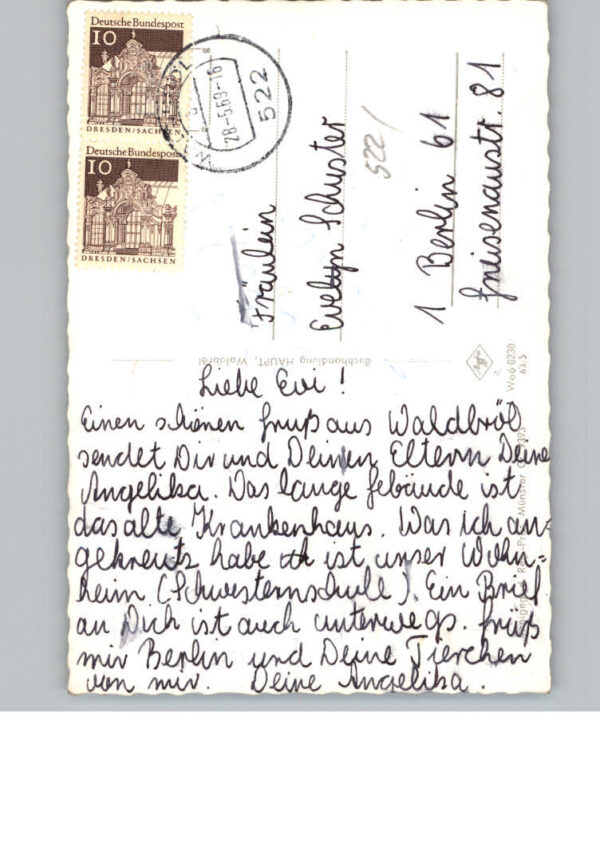 Deutsche Bundespost
10
DRESDEN/SACHSEN
Deutsche Bundespost
10
DRESDEN/SACHSEN
28-5.69-16
522
522/
Fräulein
Evelyn Schuster
1 Berlin 61
Gneisenaustr. 81
Buchhandlung HAUPT, Waldbröl
Agfa
Waö 0230
63,5
Liebe Evi!
Einen schönen Gruß aus Waldbröl
sendet Dir und Deinen Eltern Deine
Angelika. Das lange Gebäude ist
das alte Krankenhaus. Was ich an=
gekreutz habe ist unser Wohn=
heim (Schwesternschule). Ein Brief
an Dich ist auch unterwegs. Grüß
mir Berlin und Deine Tierchen
von mir. Deine Angelika.
Münster